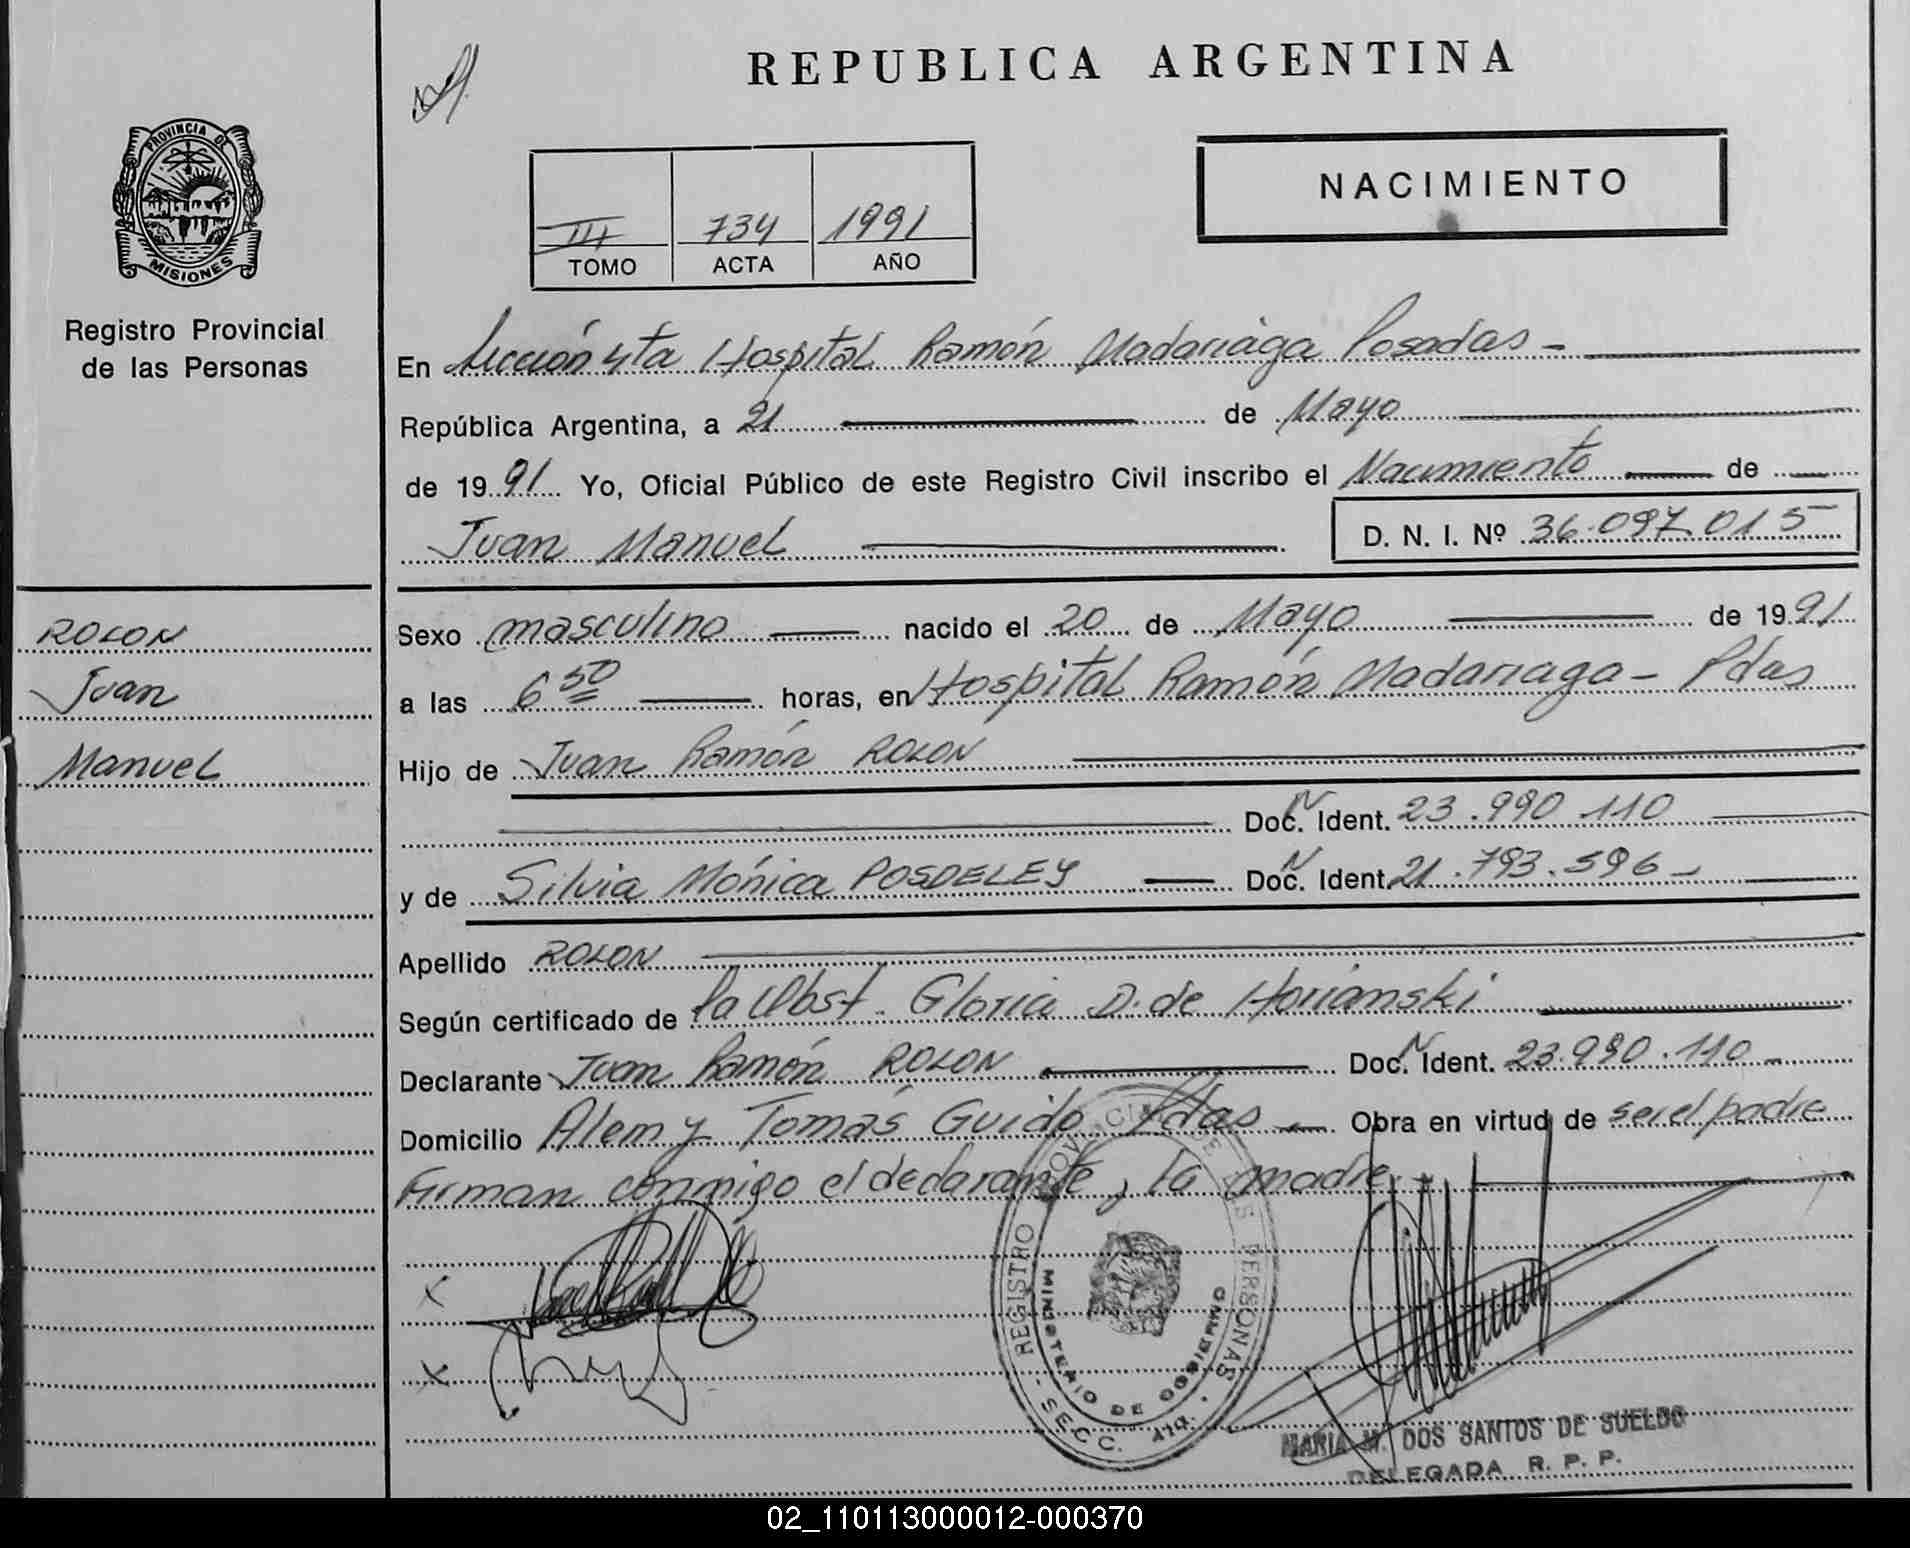 REPUBLICA ARGENTINA
PROVINCIA DE
MISIONES
Registro Provincial
de las Personas
NACIMIENTO
III 734 1991
TOMO ACTA AÑO
En Sección 4ta Hospital Ramón Madariaga Posadas -
República Argentina, a 21 de Mayo
de 1991 Yo, Oficial Público de este Registro Civil inscribo el Nacimiento de
Juan Manuel D. N. I. Nº 36.097.015
ROLON
Juan
Manuel
Sexo masculino nacido el 20 de Mayo de 1991
a las 6 50 horas, en Hospital Ramón Madariaga - Pdas
Hijo de Juan Ramón ROLON
Doc. N Ident. 23.990.110
y de Silvia Mónica POSDELEY Doc. N Ident. 21.793.596
Apellido ROLON
Según certificado de la Obst. Gloria D. de Horianski
Declarante Juan Ramón ROLON Doc. N Ident. 23.990.110
Domicilio Alem y Tomás Guido Pdas Obra en virtud de ser el padre
Firman conmigo el declarante, la madre
x
x
REGISTRO PROVINCIAL DE LAS PERSONAS
MINISTERIO DE GOBIERNO
SECC. 4ta.
MARIA M. DOS SANTOS DE SUELDO
DELEGADA R. P. P.
02_110113000012-000370